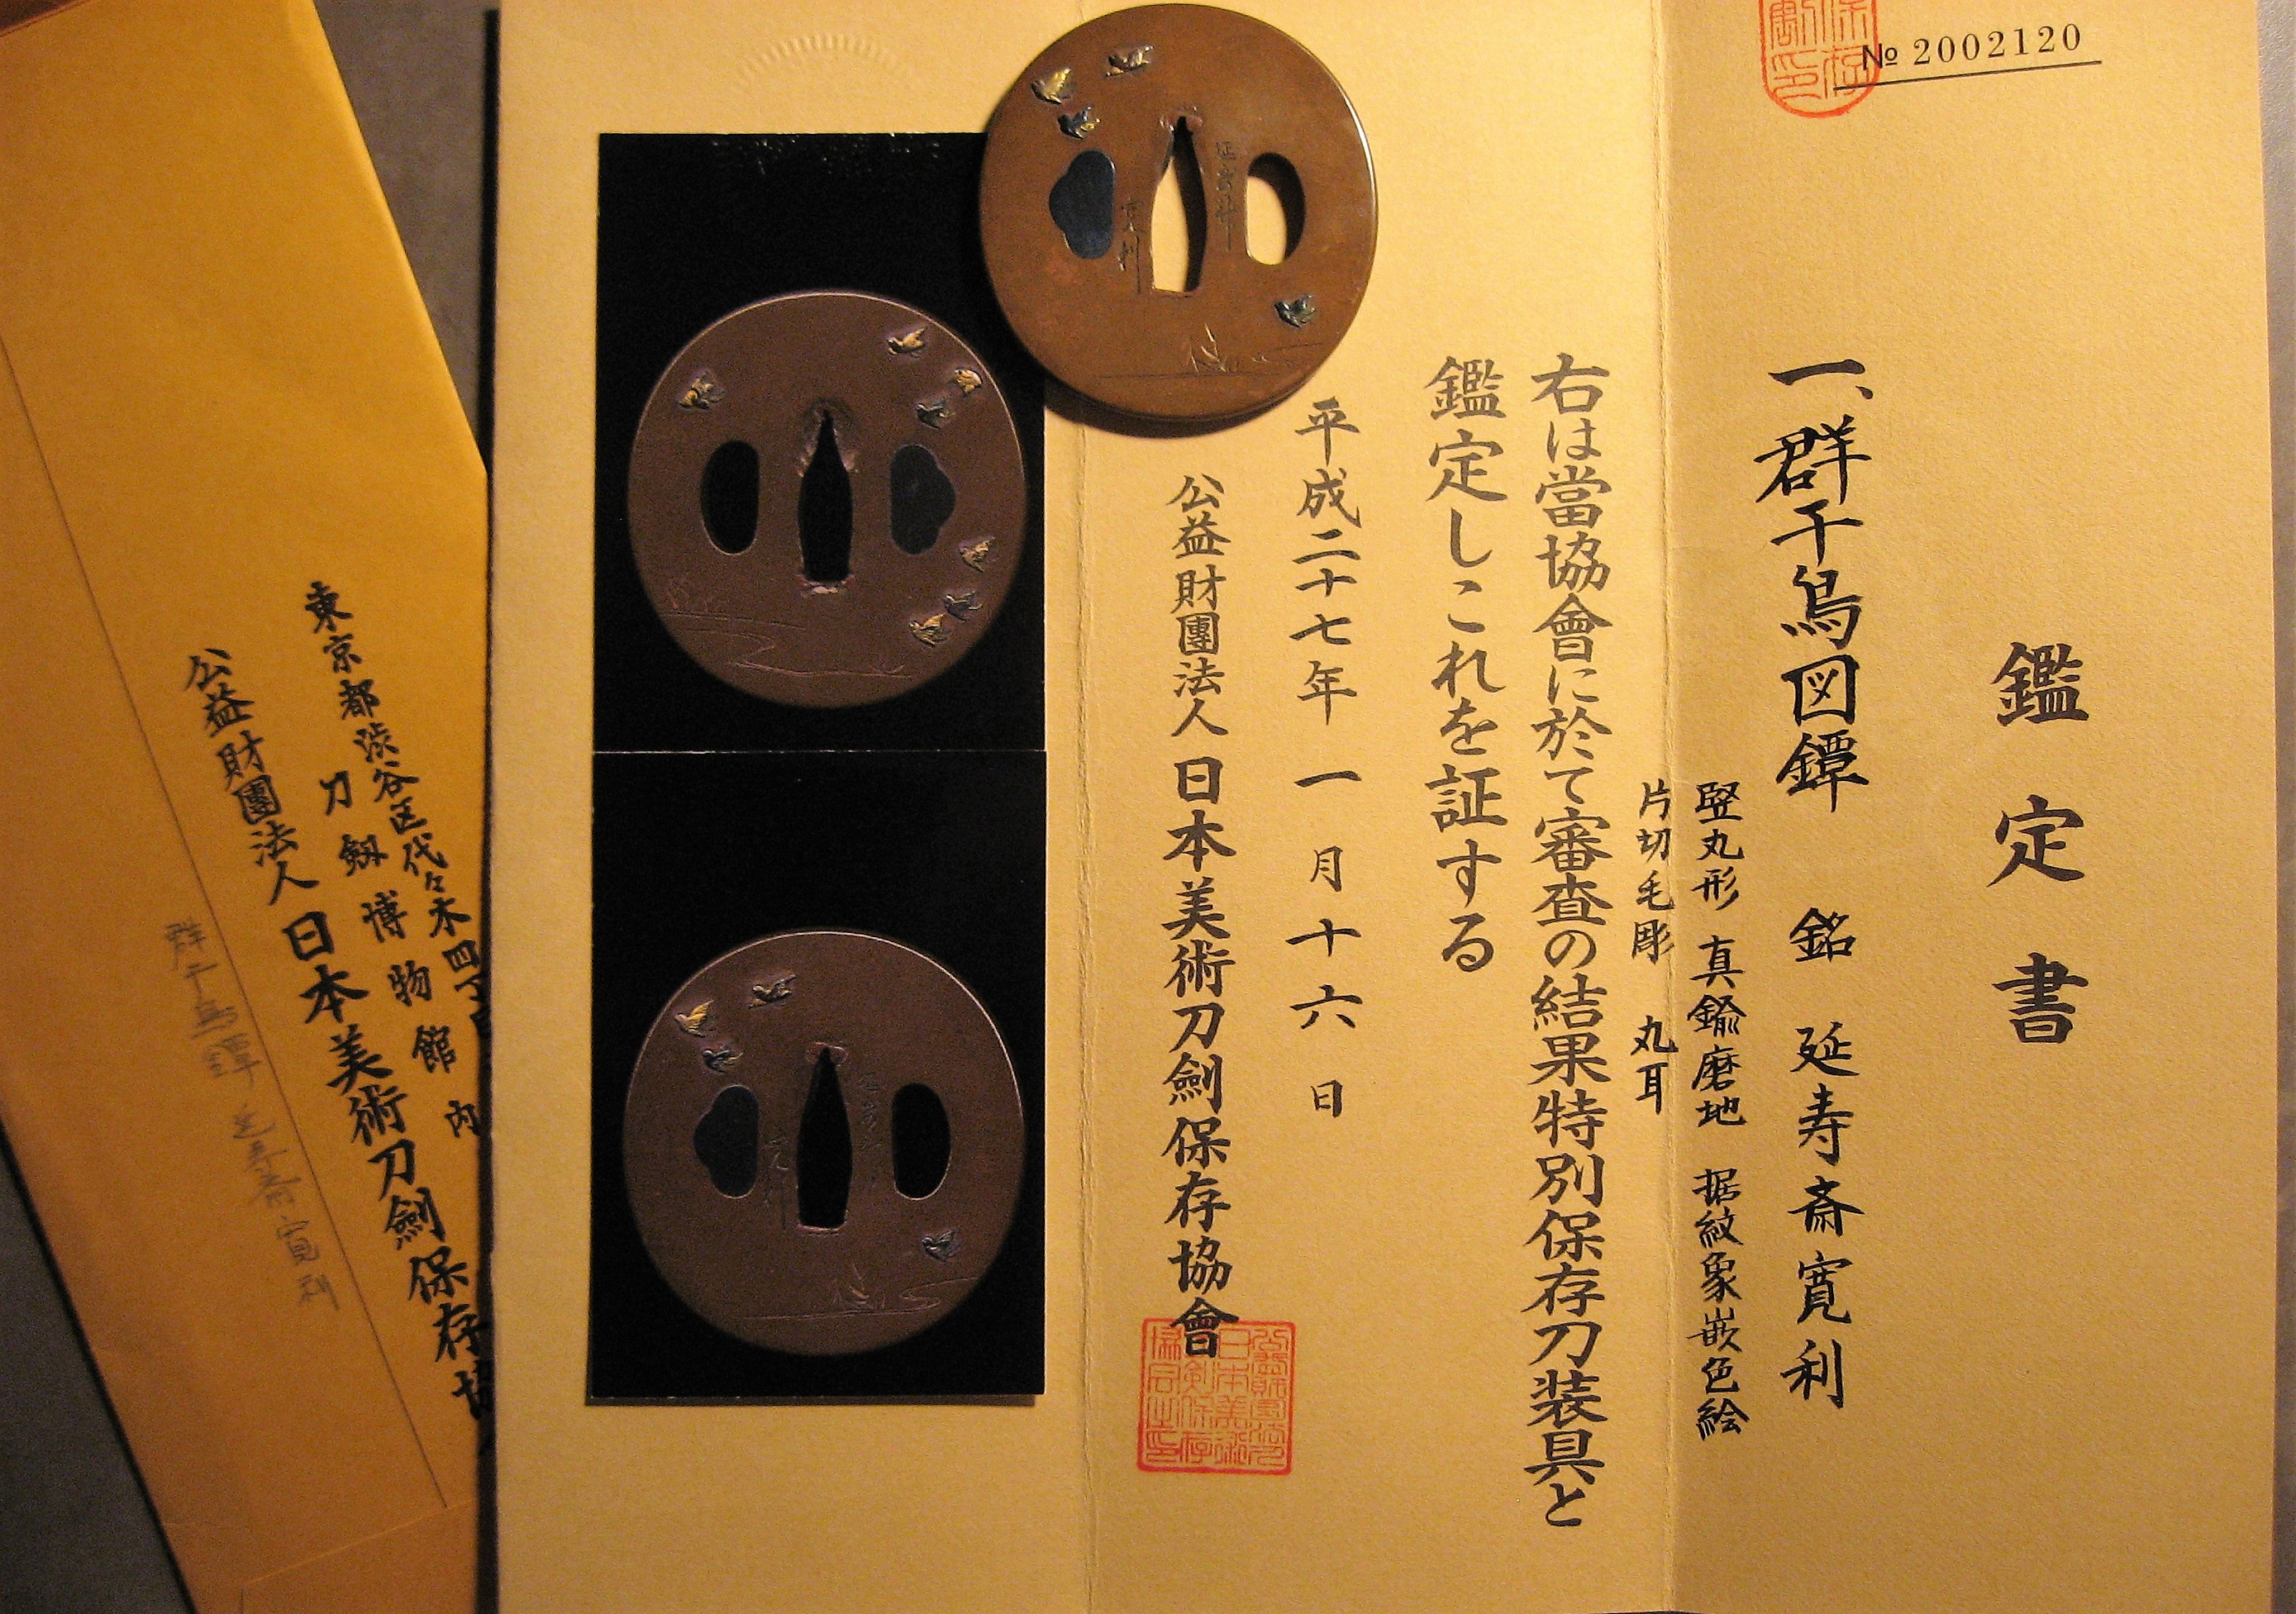 № 2002120
鑑定書
一、群千鳥図鐔　銘　延寿斎寛利
竪丸形　真鍮磨地　据紋象嵌色絵
片切毛彫　丸耳
右は當協會に於て審査の結果特別保存刀装具と
鑑定しこれを証する
平成二十七年一月十六日
公益財團法人日本美術刀劍保存協會
延寿斎
寛利
東京都渋谷区代々木四丁目
刀劔博物館内
公益財團法人日本美術刀劍保存協
群千鳥鐔　延寿斎寛利